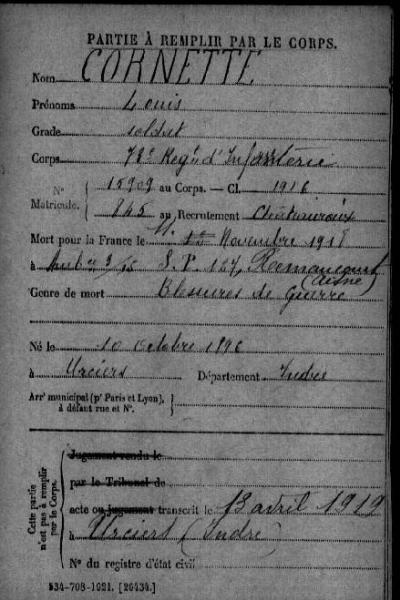 PARTIE À REMPLIR PAR LE CORPS.
Nom CORNETTE
Prénoms Louis
Grade soldat
Corps 78e Reg. d'Infanterie
N° 15909 au Corps. — Cl. 1916
Matricule. 845 au Recrutement Châteauroux
Mort pour la France le Novembre 1918
à Amb ce 3/55 S.P. 127, Remaucourt
(Aisne)
Genre de mort Blessures de Guerre
Né le 10 octobre 1896
à Urciers Département Indre
Arrt municipal (pr Paris et Lyon),
à défaut rue et N°.
Cette partie
n'est pas à remplir
par le Corps.
Jugement rendu le
par le Tribunal de
acte ou jugement transcrit le 13 avril 1919
à Urciers (Indre)
N° du registre d'état civil
534-708-1921. [26434.]